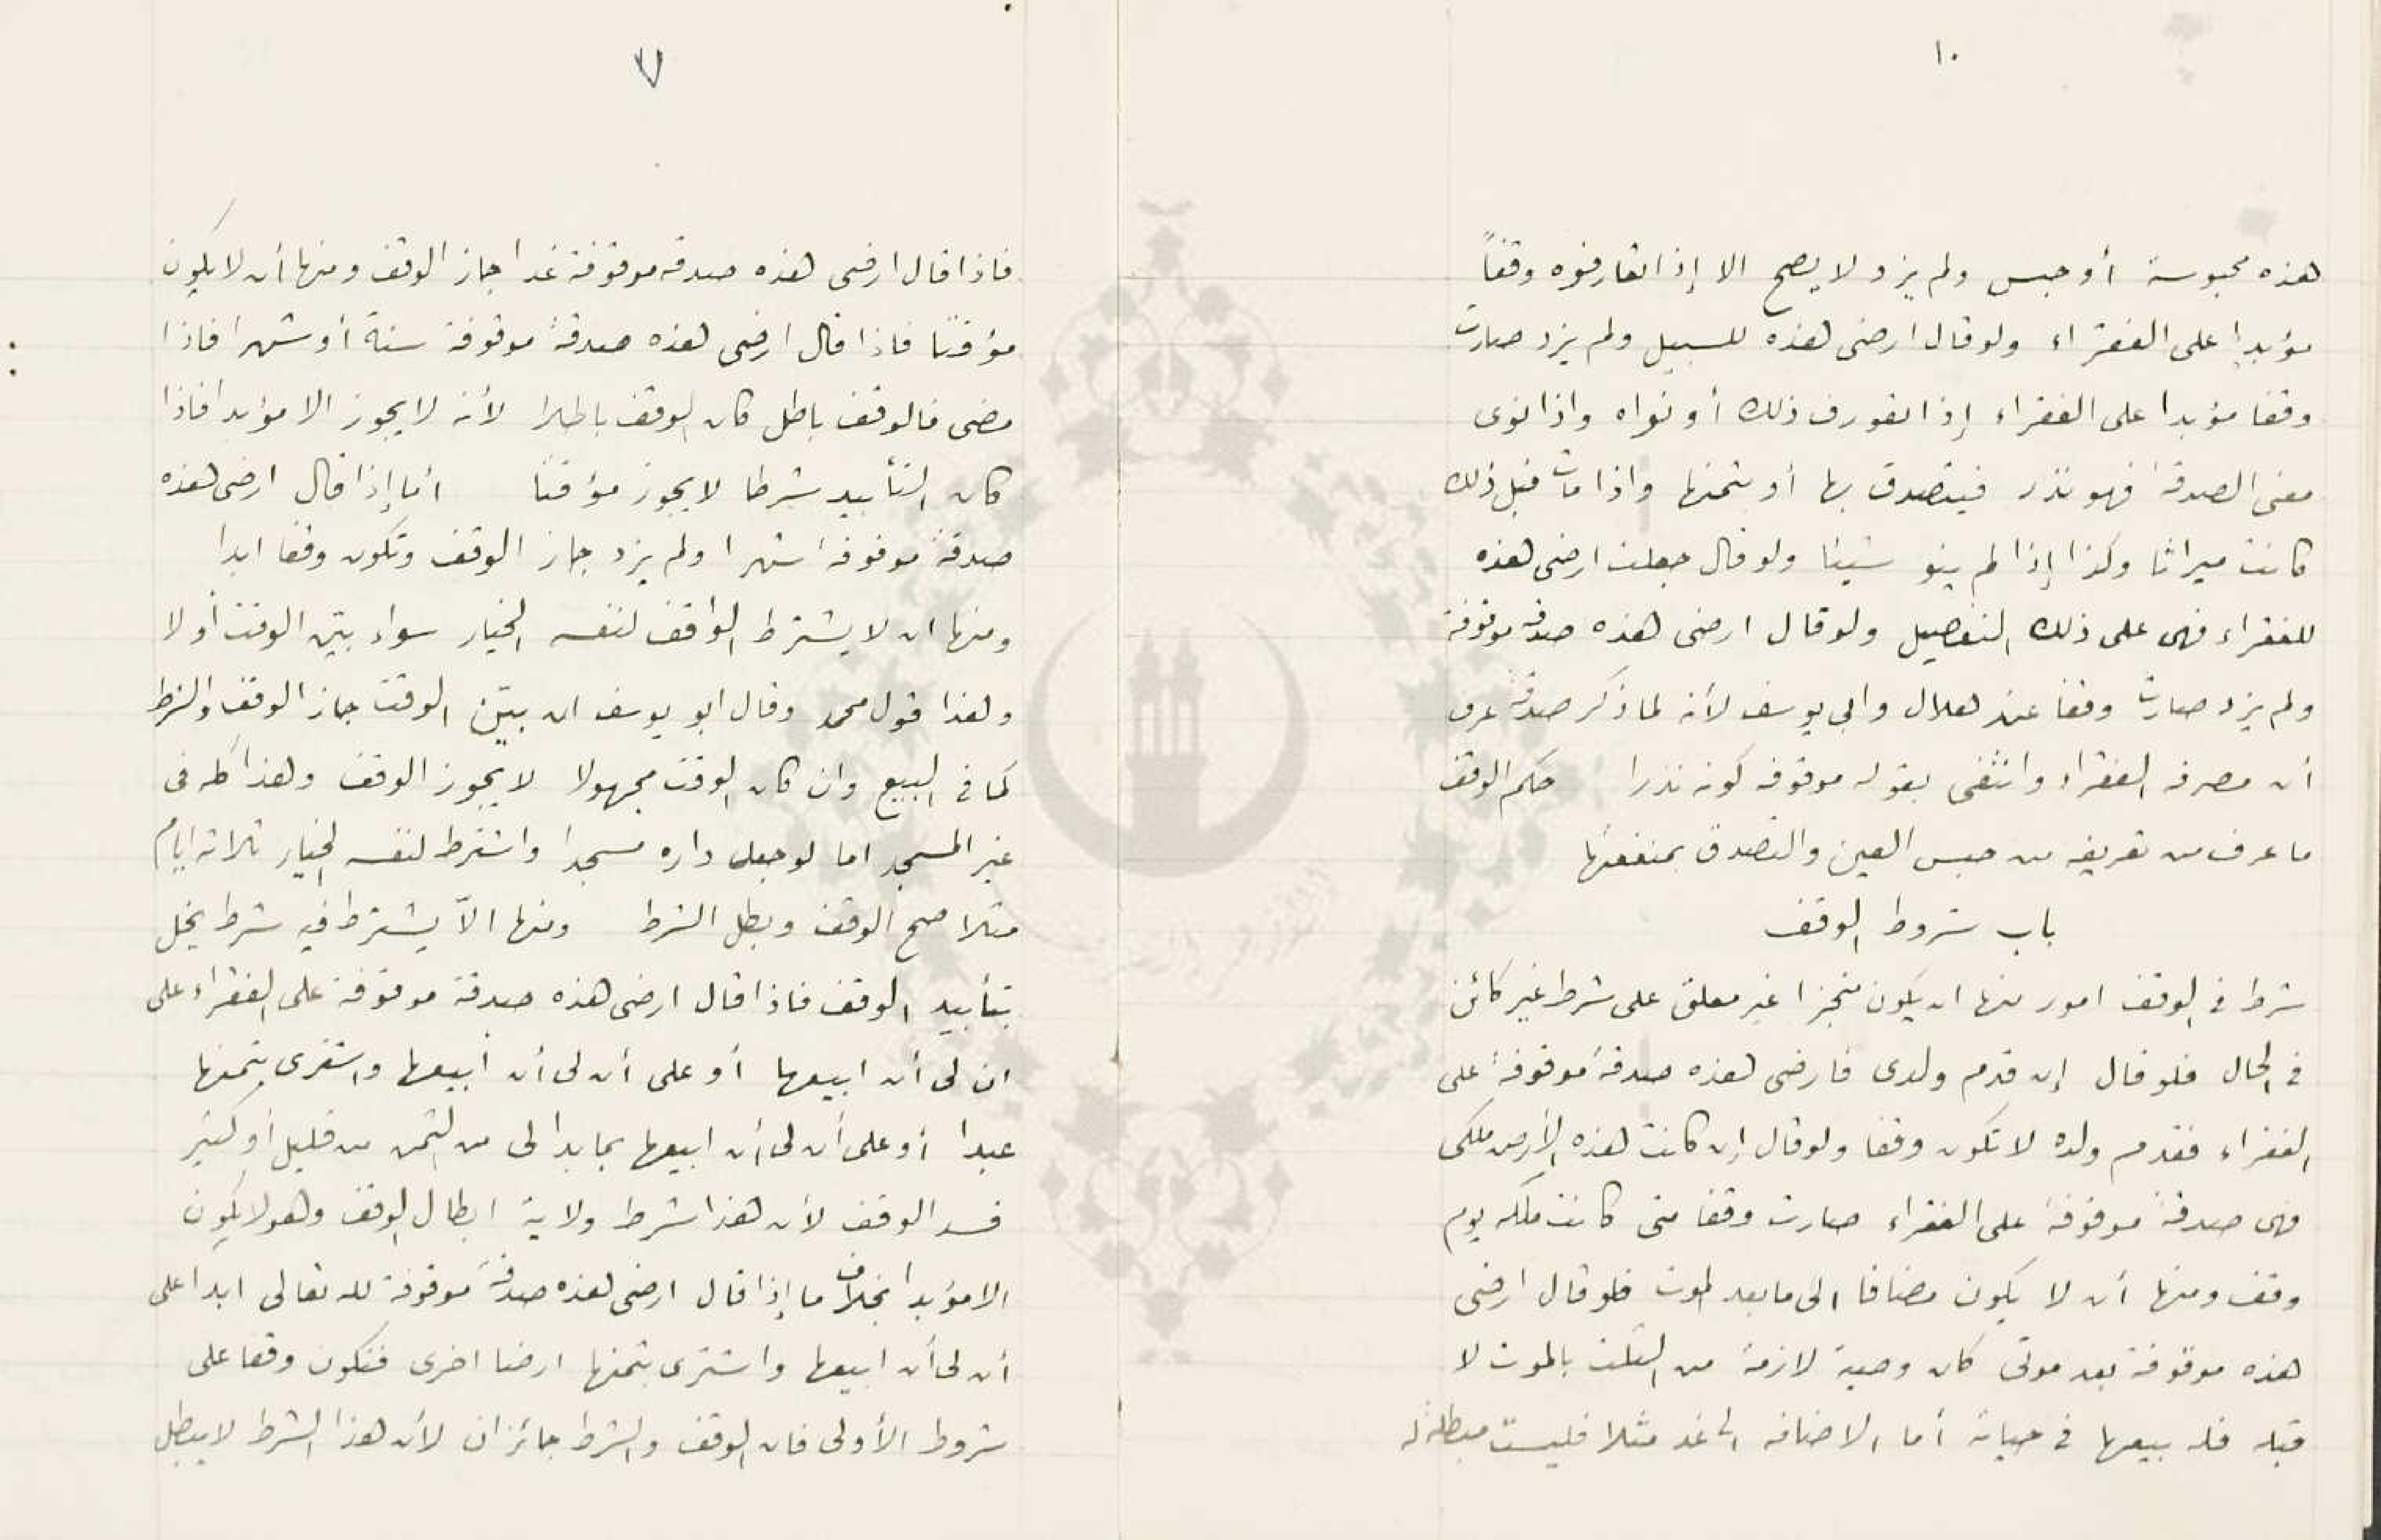 ١٠
هذه محبوسة أو حبس ولم يزد لا يصح الا إذا تعارفوه وقفاً
مؤبدا على الفقراء ولو قال ارضى هذه للسبيل ولم يزد صارت
وقفا مؤبدا على الفقراء إذا تعورف ذلك أو نواه واذا نوى
معنى الصدقة فهو نذر فيتصدق بها أو بثمنها واذا مات قبل ذلك
كانت ميراثا وكذا إذا لم ينو شيئا ولو قال جعلت ارضى هذه
للفقراء فهى على ذلك التفصيل ولو قال ارضى هذه صدقه موقوفة
ولم يزد صارت وقفا عند هلال وابى يوسف لأنه لما ذكر صدقة عرف
أن مصرفه الفقراء وانتفى بقوله موقوفه كونه نذرا حكم الوقف
ما عرف من تعريفه من حبس العين والتصدق بمنفعتها
باب شروط الوقف
شرط فى الوقف امور منها ان يكون منجزا غير معلق على شرط غير كائن
فى الحال فلو قال إن قدم ولدى فارضى هذه صدقة موقوفة على
الفقراء فقدم ولده لا تكون وقفا ولو قال إن كانت هذه الأرض ملكى
فهى صدقة موقوفة على الفقراء صارت وقفا متى كانت ملكه يوم
وقف ومنها أن لا يكون مضافا الى ما بعد الموت فلو قال ارضى
هذه موقوفة بعد موتى كان وصية لازمة من الثلث بالموت لا
قبله فله بيعها فى حياته أما الاضافه الى غد مثلا فليست مبطلة له
٧
فاذا قال ارضى هذه صدقه موقوفة غدا جاز الوقف ومنها أن لا يكون
مؤقتا فاذا قال ارضى هذه صدقة موقوفة سنة أو شهرا فاذا
مضى فالوقف باطل كان الوقف باطلا لأنه لا يجوز الا مؤبدا فاذا
كان التأبيد شرطا لا يجوز مؤقتا أما إذا قال ارضى هذه
صدقة موقوفة شهرا ولم يزد جاز الوقف وتكون وقفا ابدا
ومنها ان لا يشترط الواقف لنفسه الخيار سواء بيّن الوقت أو لا
وهذا قول محمد وقال ابو يوسف ان بيّن الوقت جاز الوقف والشرط
كما فى البيع وان كان الوقت مجهولا لا يجوز الوقف وهذا كله فى
غير المسجد اما لو جعل داره مسجدا واشترط لنفسه الخيار ثلاثة ايام
مثلا صح الوقف وبطل الشرط ومنها الاّ يشترط فيه شرط يخل
بتأبيد الوقف فاذا قال ارضى هذه صدقة موقوفة على الفقراء على
ان لى أن ابيعها أو على أن لى أن ابيعها واشترى بثمنها
عبدا أو على أن لى أن ابيعها بما بدا لى من الثمن من قليل أو كثير
فسد الوقف لأن هذا شرط ولاية ابطال الوقف وهو لا يكون
الا مؤبدا بخلاف ما إذا قال ارضى هذه صدقة موقوفة لله تعالى ابدا على
أن لى أن ابيعها واشترى بثمنها ارضا اخرى فتكون وقفا على
شروط الأولى فان الوقف والشرط جائزان لأن هذا الشرط لا يبطل